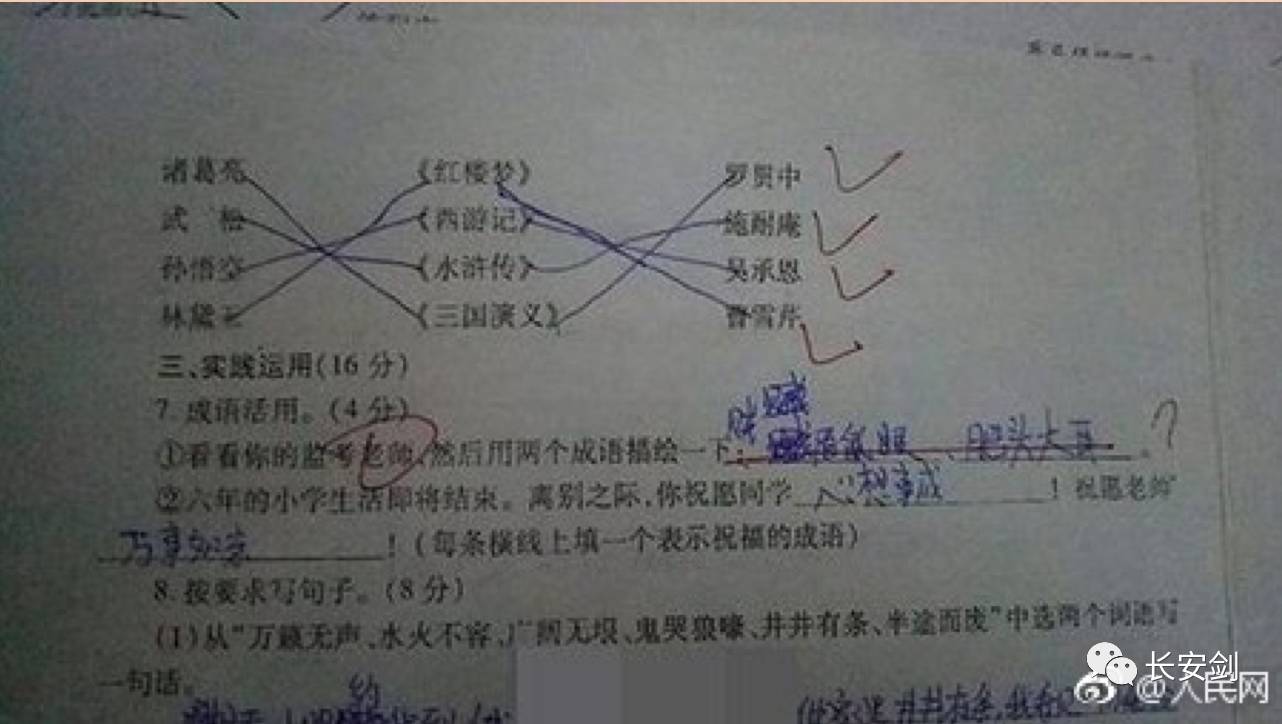 诸葛亮 《红楼梦》 罗贯中
武松 《西游记》 施耐庵
孙悟空 《水浒传》 吴承恩
林黛玉 《三国演义》 曹雪芹
三、实践运用(16分)
7. 成语活用。(4分)
贼
①看看你的监考老师,然后用两个成语描绘一下: 眉鼠眼、肥头大耳。?
②六年的小学生活即将结束。离别之际,你祝愿同学心想事成!祝愿老师
万事如意!(每条横线上填一个表示祝福的成语)
8. 按要求写句子。(8分)
(1)从“万籁无声、水火不容、广阔无垠、鬼哭狼嚎、井井有条、半途而废”中选两个词语写
一句话。
约
井井有条,我
长安剑
@人民网